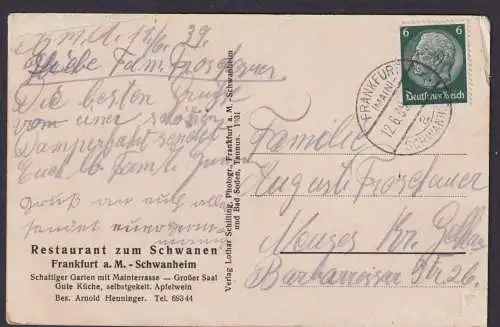 11/6. 39.
Liebe Fam. Froschauer
Die besten Grüße
von einer schönen
Dampferfahrt sendet
Euch
Gruß an euch alle
sendet
Restaurant zum Schwanen
Frankfurt a. M. - Schwanheim
Schattiger Garten mit Mainterrasse — Großer Saal
Gute Küche, selbstgekelt. Apfelwein
Bes. Arnold Henninger. Tel. 69344
Verlag Lothar Schilling, Photogr., Frankfurt a. M.-Schwanheim
und Bad Soden, Taunus.
6 6
Deutsches Reich
FRANKFURT
(MAIN)
12.6.3
a
SCHWANH
Familie
Auguste Froschauer
Kr.
Barbarossa Str 26.